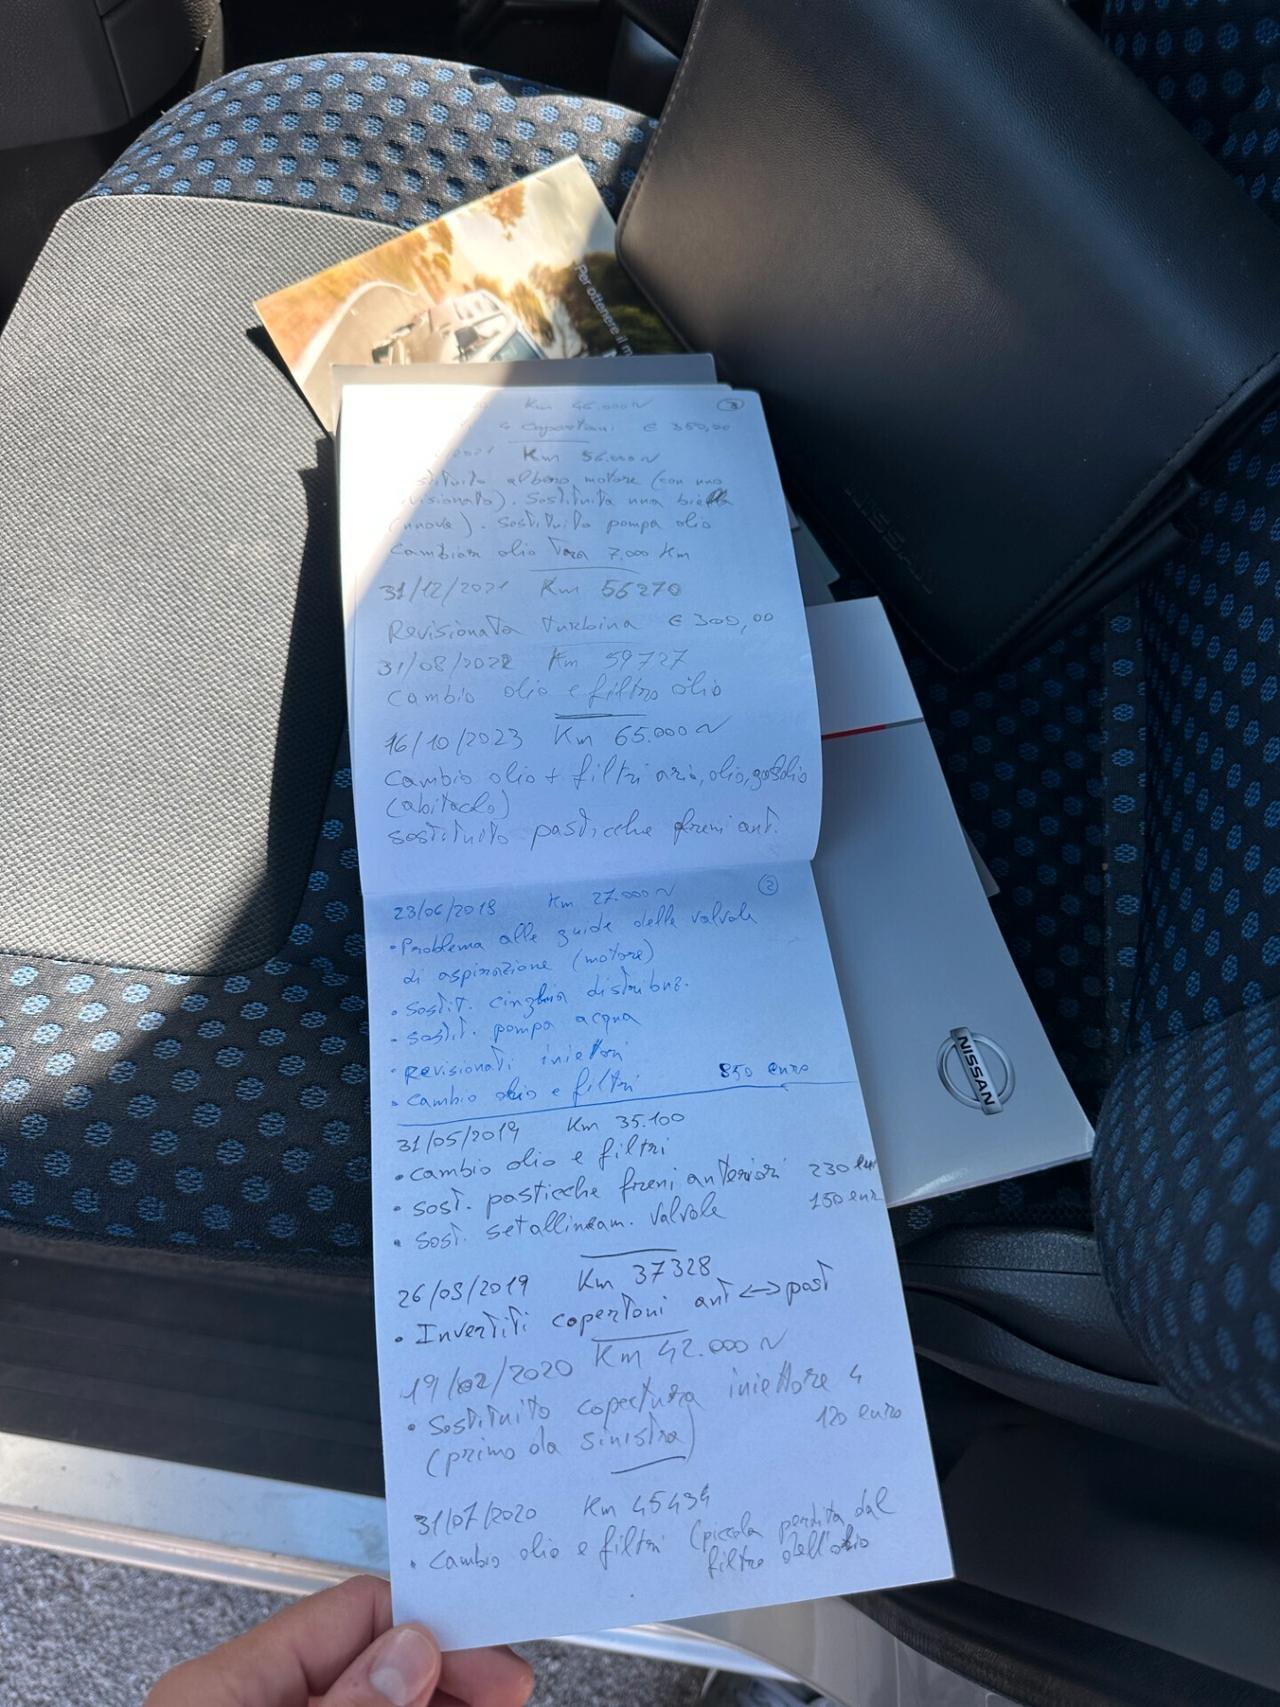 Per ottenere il m
Km 46.000 ~ 3
4 Copertoni € 350,00
2021 Km 56.000 ~
stituito albero motore (con uno
visionato). Sostituita una biella
(nuova). Sostituito pompa olio
Cambiare olio tra 7.000 Km
31/12/2021 Km 56270
Revisionata turbina € 300,00
31/08/2022 Km 59727
Cambio olio e filtro olio
16/10/2023 Km 65.000 ~
Cambio olio + filtri aria, olio, gasolio
(abitacolo)
sostituito pasticche freni ant.
23/06/2018 Km 27.000 ~ 2
• Problema alle guide delle valvole
di aspirazione (motore)
• Sostit. cinghia distribuz.
• sostit. pompa acqua
• revisionati iniettori
• cambio olio e filtri 850 euro
31/05/2019 Km 35.100
• cambio olio e filtri
• sost. pasticche freni anteriori 230 eur
• sost. setallineam. valvole 150 eur
26/08/2019 Km 37328
• Invertiti copertoni ant <-> post
19/02/2020 Km 42.000 ~
• Sostituito copertura iniettore 4
(primo da sinistra) 120 euro
31/07/2020 Km 45434
• Cambio olio e filtri (piccola perdita dal
filtro dell'olio
NISSAN
NISSAN